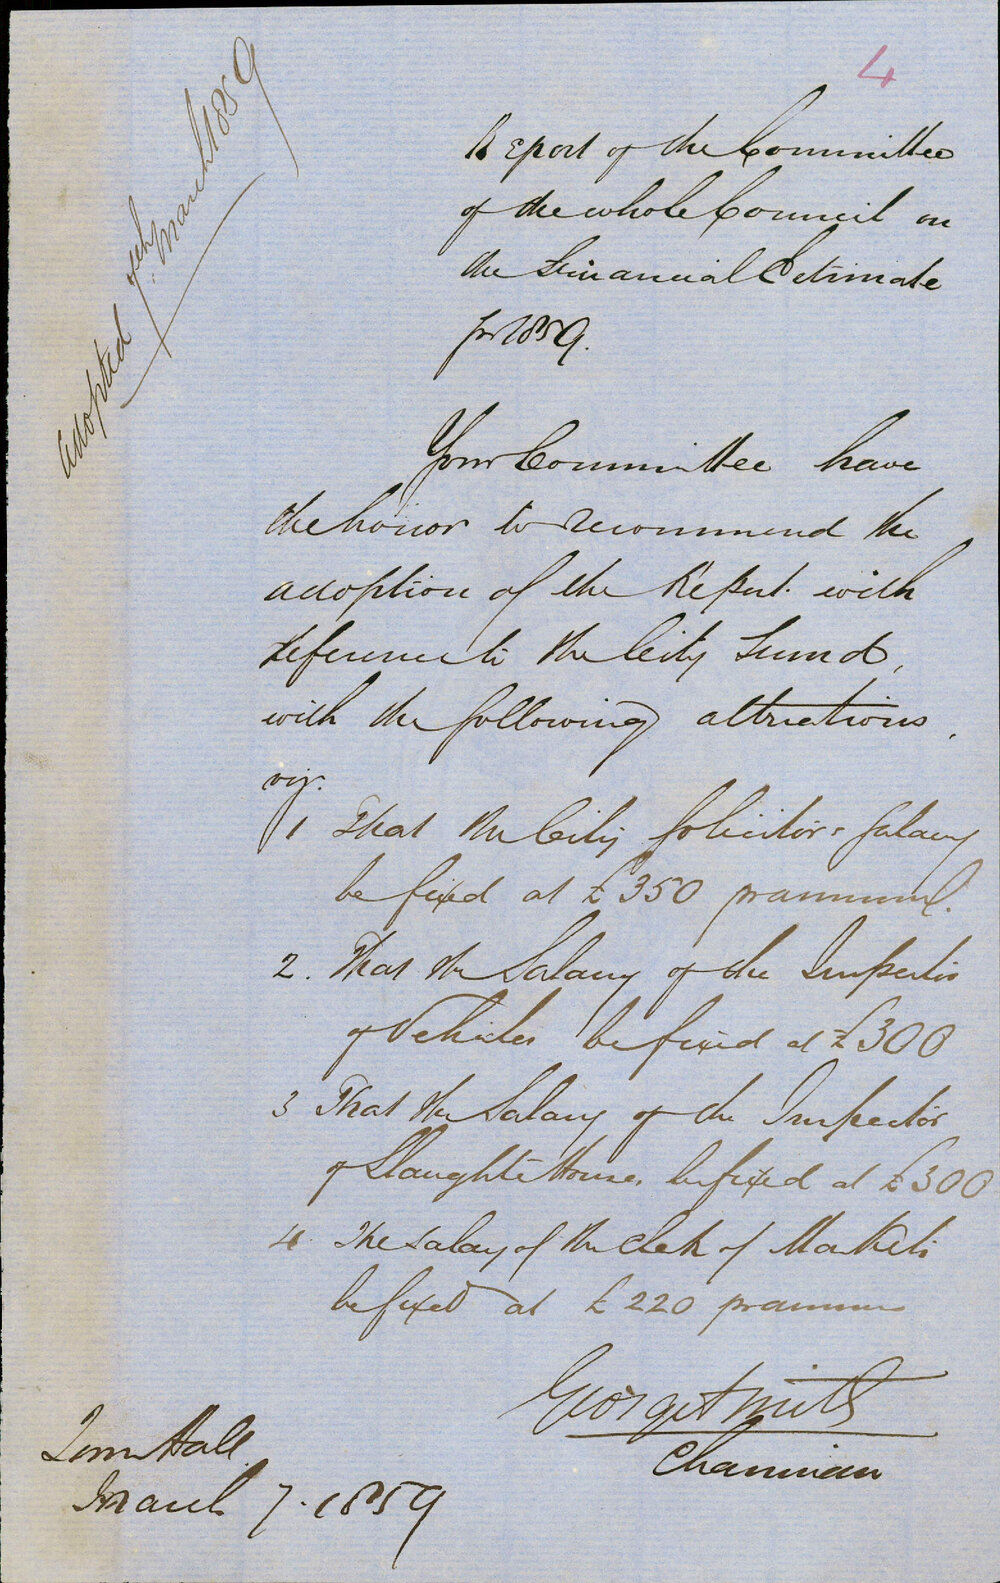 4
Adopted 7th March 1859
Report of the Committee
of the whole Council on
the Financial Estimate
for 1859.
Your Committee have
the honor to recommend the
adoption of the Report. with
reference to the City Fund,
with the following alterations,
viz.
1 That the City Solicitors Salary
be fixed at £350 pr annum.
2. That the Salary of the Inspector
of Vehicles be fixed at £300
3 That the Salary of the Inspector
of Slaughter Houses be fixed at £300
4. The Salary of the Clerk of Markets
be fixed at £220 pr annum
George Smith
Chairman
Town Hall
March 7. 1859